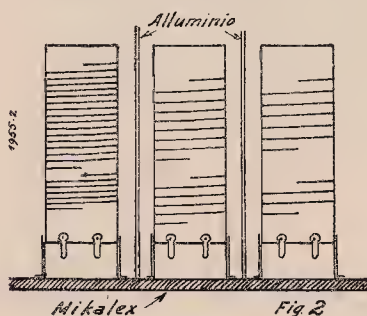 Alluminio
1955-2
Mikalex
Fig. 2